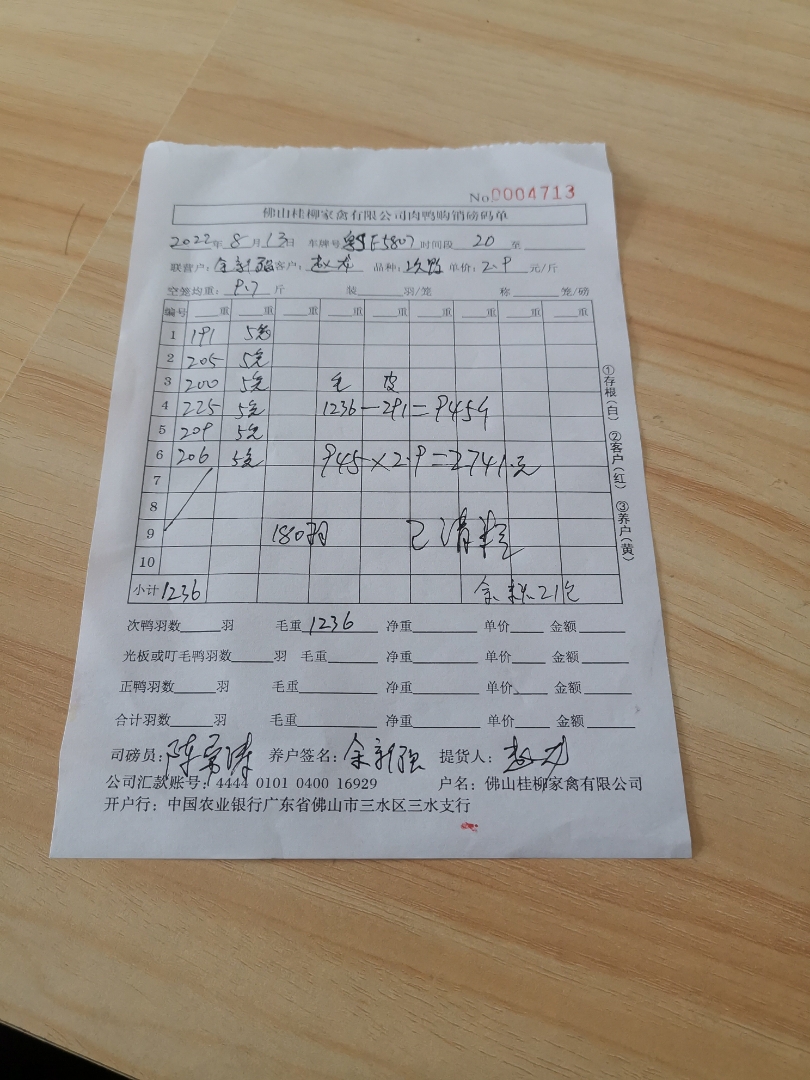 No.0004713
佛山桂柳家禽有限公司肉鸭购销磅码单
2022年 8月13日 车牌号粤F5807 时间段 20 至
联营户：余新强 客户：赵龙 品种：次鸭 单价：2.9 元/斤
空笼均重：9.7 斤 装 羽/笼 称 笼/磅
编号 重 重 重 重 重 重 重 重 重
1 191 5笼
2 205 5笼
3 200 5笼 毛 皮
4 225 5笼 1236-291=945斤
5 209 5笼
6 206 5笼 945×2.9=2741.元
7
8
9 180羽 已清
10
小计 1236 余 21包
次鸭羽数 羽 毛重 1236 净重 单价 金额
光板或叮毛鸭羽数 羽 毛重 净重 单价 金额
正鸭羽数 羽 毛重 净重 单价 金额
合计羽数 羽 毛重 净重 单价 金额
司磅员：陈 涛 养户签名：余新强 提货人：赵龙
公司汇款账号：4444 0101 0400 16929 户名：佛山桂柳家禽有限公司
开户行：中国农业银行广东省佛山市三水区三水支行
①存根（白） ②客户（红） ③养户（黄）